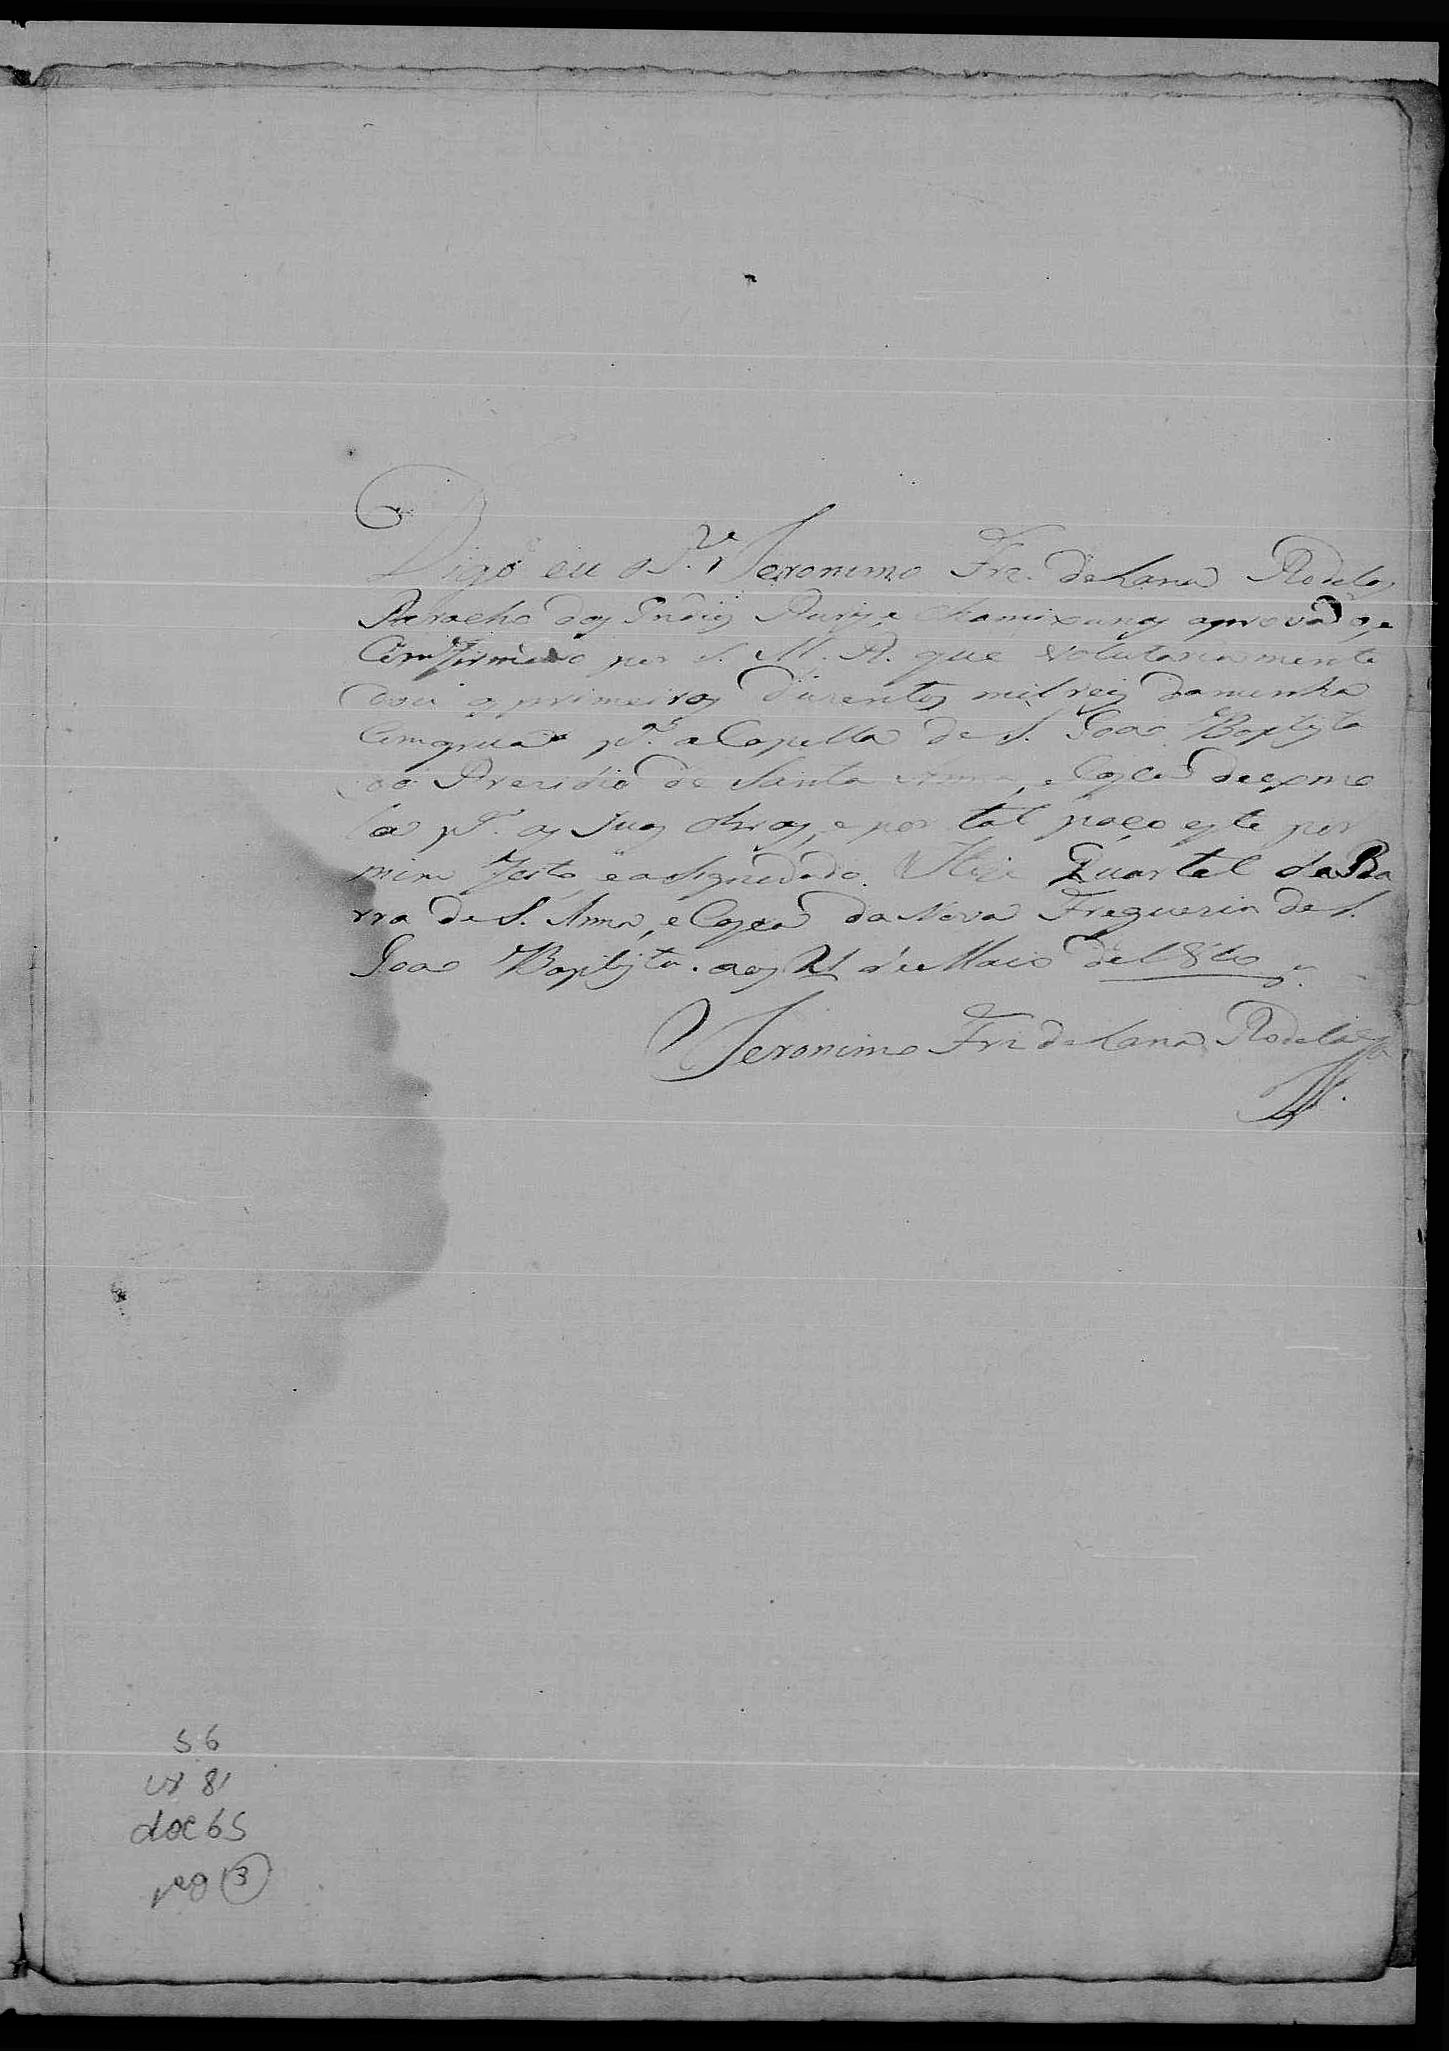 Digo eu o P.e Jeronimo Frz. de Lana Rodela,
Parocho dos Indios Puris, e chamixunas aprovado, e
Comfirmado por S. M. R. que volutariamente
dou os primeiros duzentos mil reis da minha
Comgrua p.a a Capella de S. Joao Baptista
do Prezidio de Santa Anna, e de esmo
la p.a as suas obras, e por tal paço este por
mim feito e asignadado. Hoje Quartel da Ba
rra de S. Anna, e da Nova Freguezia de S.
Joao Baptista. aos 21 de Maio de 1810
Jeronimo Frz de Lana Rodela
56
cx 81
doc 65
pag 3